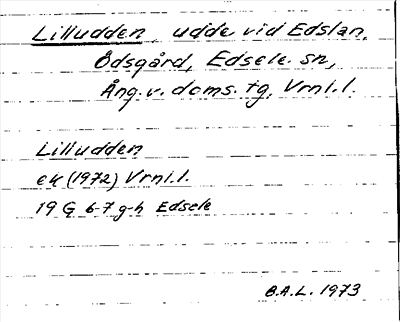 Lilludden, udde vid Edslan,
Ödsgård, Edsele sn,
Ång. v. doms. tg, Vrnl.l.
Lilludden
ek (1972) Vrnl.l.
19 G 6-7 g-h Edsele
B.A.L. 1973